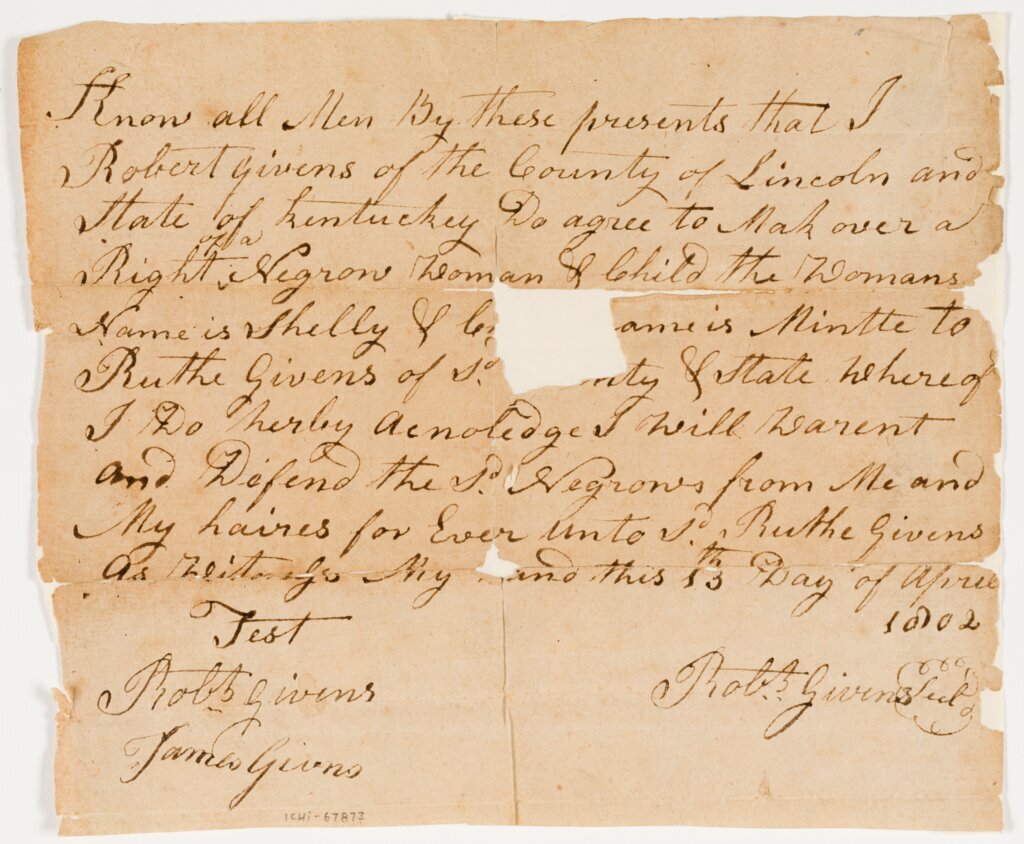 Know all Men By these presents that I
Robert Givens of the County of Lincoln and
State of Kentuckey Do agree to Mak over a
of a
Right Negrow Woman & Child the Womans
Name is Shelly & ame is Mintte to
Ruthe Givens of Sd nty & State Whereof
I Do herby Acnoledge I Will Warent
and Difend the Sd Negrows from Me and
My haires for Ever Unto Sd Ruthe Givens
As Witness My and this 13th Day of April
1802
Test
Robt Givens Robt Givens Seal
James Givens
ICHi-67873